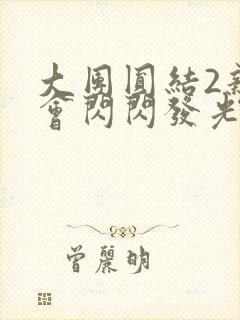 大團圓結2新
會閃閃發光
曾麗明